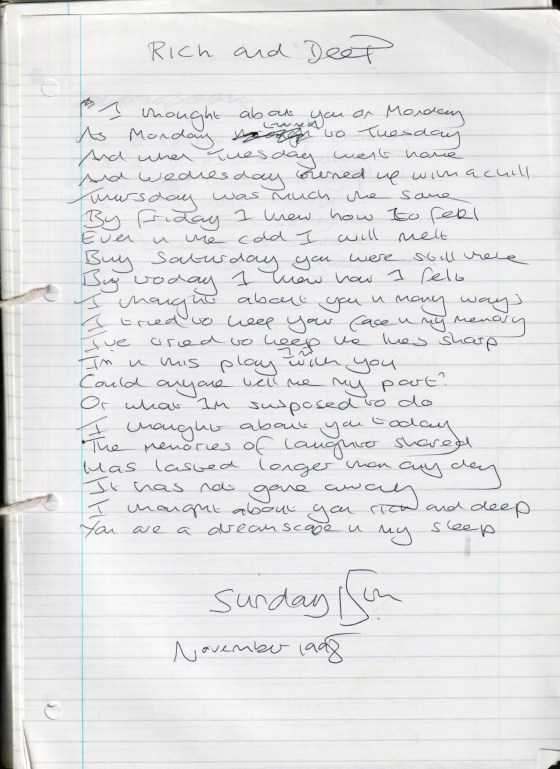 Rich and Deep
I thought about you on Monday
As Monday turned to Tuesday
And when Tuesday went home
And Wednesday turned up with a chill
Thursday was much the same
By Friday I knew how to feel
Even in the cold I will melt
By Saturday you were still there
By today I knew how I felt
I thought about you in many ways
I tried to keep your face in my memory
I've tried to keep the lines sharp
I'm in this play I'm with you
Could anyone tell me my part?
Or what I'm supposed to do
I thought about you today
The memories of laughter shared
Has lasted longer than any day
It has not gone away
I thought about you rich and deep
You are a dreamscape in my sleep
Sunday 15th
November 1998